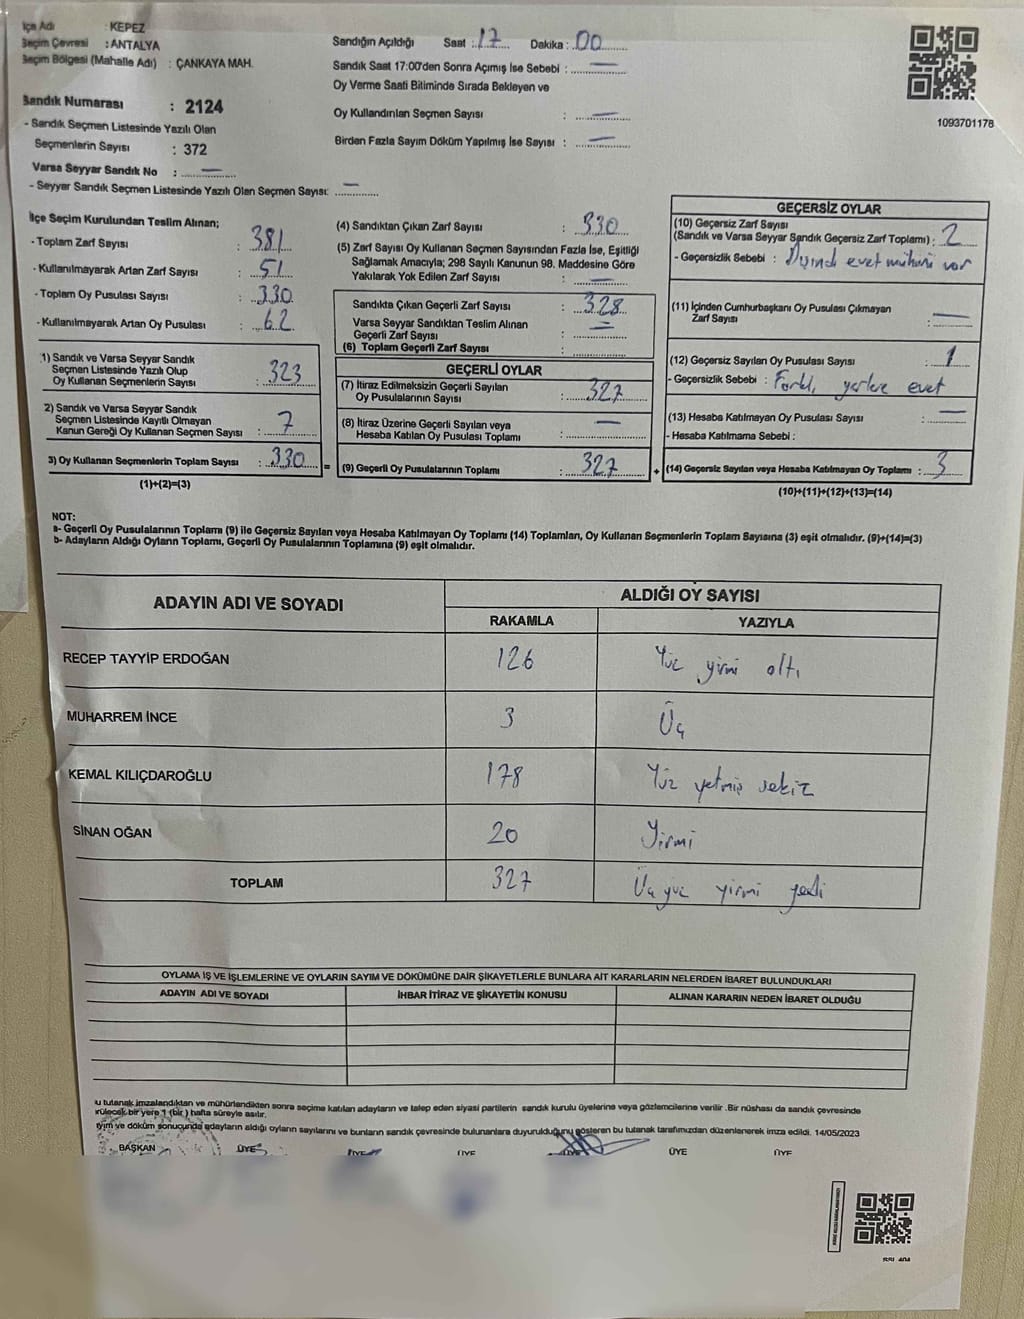 İlçe Adı : KEPEZ
Seçim Çevresi : ANTALYA
Seçim Bölgesi (Mahalle Adı) : ÇANKAYA MAH.
Sandık Numarası : 2124
- Sandık Seçmen Listesinde Yazılı Olan
Seçmenlerin Sayısı : 372
Varsa Seyyar Sandık No : —
- Seyyar Sandık Seçmen Listesinde Yazılı Olan Seçmen Sayısı: —
Sandığın Açıldığı Saat : 17 Dakika : 00
Sandık Saat 17:00'den Sonra Açımış İse Sebebi : —
Oy Verme Saati Bitiminde Sırada Bekleyen ve
Oy Kullandırılan Seçmen Sayısı : —
Birden Fazla Sayım Döküm Yapılmış İse Sayısı : —
1093701178
İlçe Seçim Kurulundan Teslim Alınan;
- Toplam Zarf Sayısı : 381
- Kullanılmayarak Artan Zarf Sayısı : 51
- Toplam Oy Pusulası Sayısı : 330
- Kullanılmayarak Artan Oy Pusulası : 62
1) Sandık ve Varsa Seyyar Sandık
Seçmen Listesinde Yazılı Olup
Oy Kullanan Seçmenlerin Sayısı : 323
2) Sandık ve Varsa Seyyar Sandık
Seçmen Listesinde Kayıtlı Olmayan
Kanun Gereği Oy Kullanan Seçmen Sayısı : 7
3) Oy Kullanan Seçmenlerin Toplam Sayısı : 330 =
(1)+(2)=(3)
(4) Sandıktan Çıkan Zarf Sayısı : 330
(5) Zarf Sayısı Oy Kullanan Seçmen Sayısından Fazla İse, Eşitliği
Sağlamak Amacıyla; 298 Sayılı Kanunun 98. Maddesine Göre
Yakılarak Yok Edilen Zarf Sayısı : —
Sandıkta Çıkan Geçerli Zarf Sayısı : 328
Varsa Seyyar Sandıktan Teslim Alınan
Geçerli Zarf Sayısı : —
(6) Toplam Geçerli Zarf Sayısı :
GEÇERLİ OYLAR
(7) İtiraz Edilmeksizin Geçerli Sayılan
Oy Pusulalarının Sayısı : 327
(8) İtiraz Üzerine Geçerli Sayılan veya
Hesaba Katılan Oy Pusulası Toplamı : —
(9) Geçerli Oy Pusulalarının Toplamı : 327 +
GEÇERSİZ OYLAR
(10) Geçersiz Zarf Sayısı
(Sandık ve Varsa Seyyar Sandık Geçersiz Zarf Toplamı) : 2
- Geçersizlik Sebebi : Dışında evet mühürü var
(11) İçinden Cumhurbaşkanı Oy Pusulası Çıkmayan
Zarf Sayısı : —
(12) Geçersiz Sayılan Oy Pusulası Sayısı : 1
- Geçersizlik Sebebi : Farklı yerlere evet
(13) Hesaba Katılmayan Oy Pusulası Sayısı : —
- Hesaba Katılmama Sebebi :
(14) Geçersiz Sayılan veya Hesaba Katılmayan Oy Toplamı : 3
(10)+(11)+(12)+(13)=(14)
NOT:
a- Geçerli Oy Pusulalarının Toplamı (9) ile Geçersiz Sayılan veya Hesaba Katılmayan Oy Toplamı (14) Toplamları, Oy Kullanan Seçmenlerin Toplam Sayısına (3) eşit olmalıdır. (9)+(14)=(3)
b- Adayların Aldığı Oyların Toplamı, Geçerli Oy Pusulalarının Toplamına (9) eşit olmalıdır.
ADAYIN ADI VE SOYADI ALDIĞI OY SAYISI
RAKAMLA YAZIYLA
RECEP TAYYİP ERDOĞAN 126 Yüz yirmi altı
MUHARREM İNCE 3 Üç
KEMAL KILIÇDAROĞLU 178 Yüz yetmiş sekiz
SİNAN OĞAN 20 Yirmi
TOPLAM 327 Üçyüz yirmi yedi
OYLAMA İŞ VE İŞLEMLERİNE VE OYLARIN SAYIM VE DÖKÜMÜNE DAİR ŞİKAYETLERLE BUNLARA AİT KARARLARIN NELERDEN İBARET BULUNDUKLARI
ADAYIN ADI VE SOYADI İHBAR İTİRAZ VE ŞİKAYETİN KONUSU ALINAN KARARIN NEDEN İBARET OLDUĞU
u tutanak imzalandıktan ve mühürlendikten sonra seçime katılan adayların ve talep eden siyasi partilerin sandık kurulu üyelerine veya gözlemcilerine verilir .Bir nüshası da sandık çevresinde
rülecek bir yere 1 (bir ) hafta süreyle asılır.
ıyım ve döküm sonucunda adayların aldığı oyların sayılarını ve bunların sandık çevresinde bulunanlara duyurulduğunu gösteren bu tutanak tarafımızdan düzenlenerek imza edildi. 14/05/2023
BAŞKAN ÜYE ÜYE ÜYE ÜYE ÜYE ÜYE